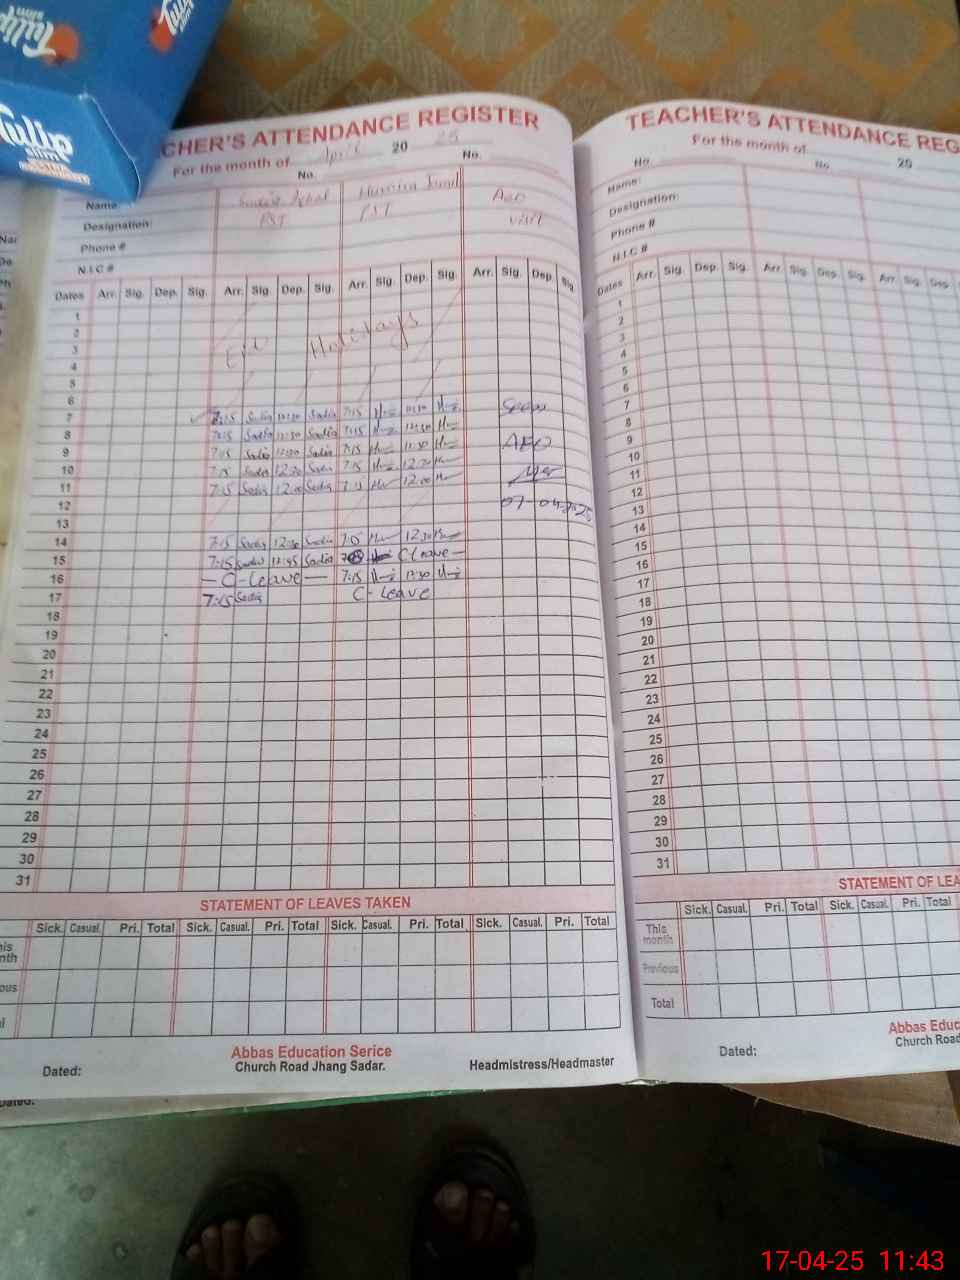 Tulip
slim
Tulip
Tulip
slim
TEACHER'S ATTENDANCE REGISTER
For the month of April 20 25
No. No.
Name: Sadia Iqbal
Designation: PST PST AEO visit
Phone #
N.I.C #
Dates Arr. Sig. Dep. Sig. Arr. Sig. Dep. Sig. Arr. Sig. Dep. Sig. Arr. Sig. Dep. Sig.
1
2
3 Eid Holidays
4
5
6
7 7:15 Sadia 12:30 Sadia 7:15 12:30
8 7:15 Sadia 12:30 Sadia 7:15 12:30
9 7:15 Sadia 12:30 Sadia 7:15 12:30 AEO
10 7:15 Sadia 12:30 Sadia 7:15 12:30
11 7:15 Sadia 12:00 Sadia 7:15 12:00
12 07-04-2025
13
14 7:15 Sadia 12:30 Sadia 12:30
15 7:15 Sadia 12:45 Sadia C leave
16 C-leave 7:15 12:30
17 7:15 Sadia C-leave
18
19
20
21
22
23
24
25
26
27
28
29
30
31
STATEMENT OF LEAVES TAKEN
Sick. Casual. Pri. Total Sick. Casual. Pri. Total Sick. Casual. Pri. Total Sick. Casual. Pri. Total
Dated:
Abbas Education Serice
Church Road Jhang Sadar.
Headmistress/Headmaster
TEACHER'S ATTENDANCE REG
For the month of 20
No. No.
Name:
Designation:
Phone #
N.I.C #
Dates Arr. Sig. Dep. Sig. Arr. Sig. Dep. Sig. Arr. Sig. Dep
1
2
3
4
5
6
7
8
9
10
11
12
13
14
15
16
17
18
19
20
21
22
23
24
25
26
27
28
29
30
31
STATEMENT OF LEA
Sick. Casual. Pri. Total Sick. Casual. Pri. Total
This month
Previous
Total
Dated:
Abbas Educ
Church Road
17-04-25 11:43